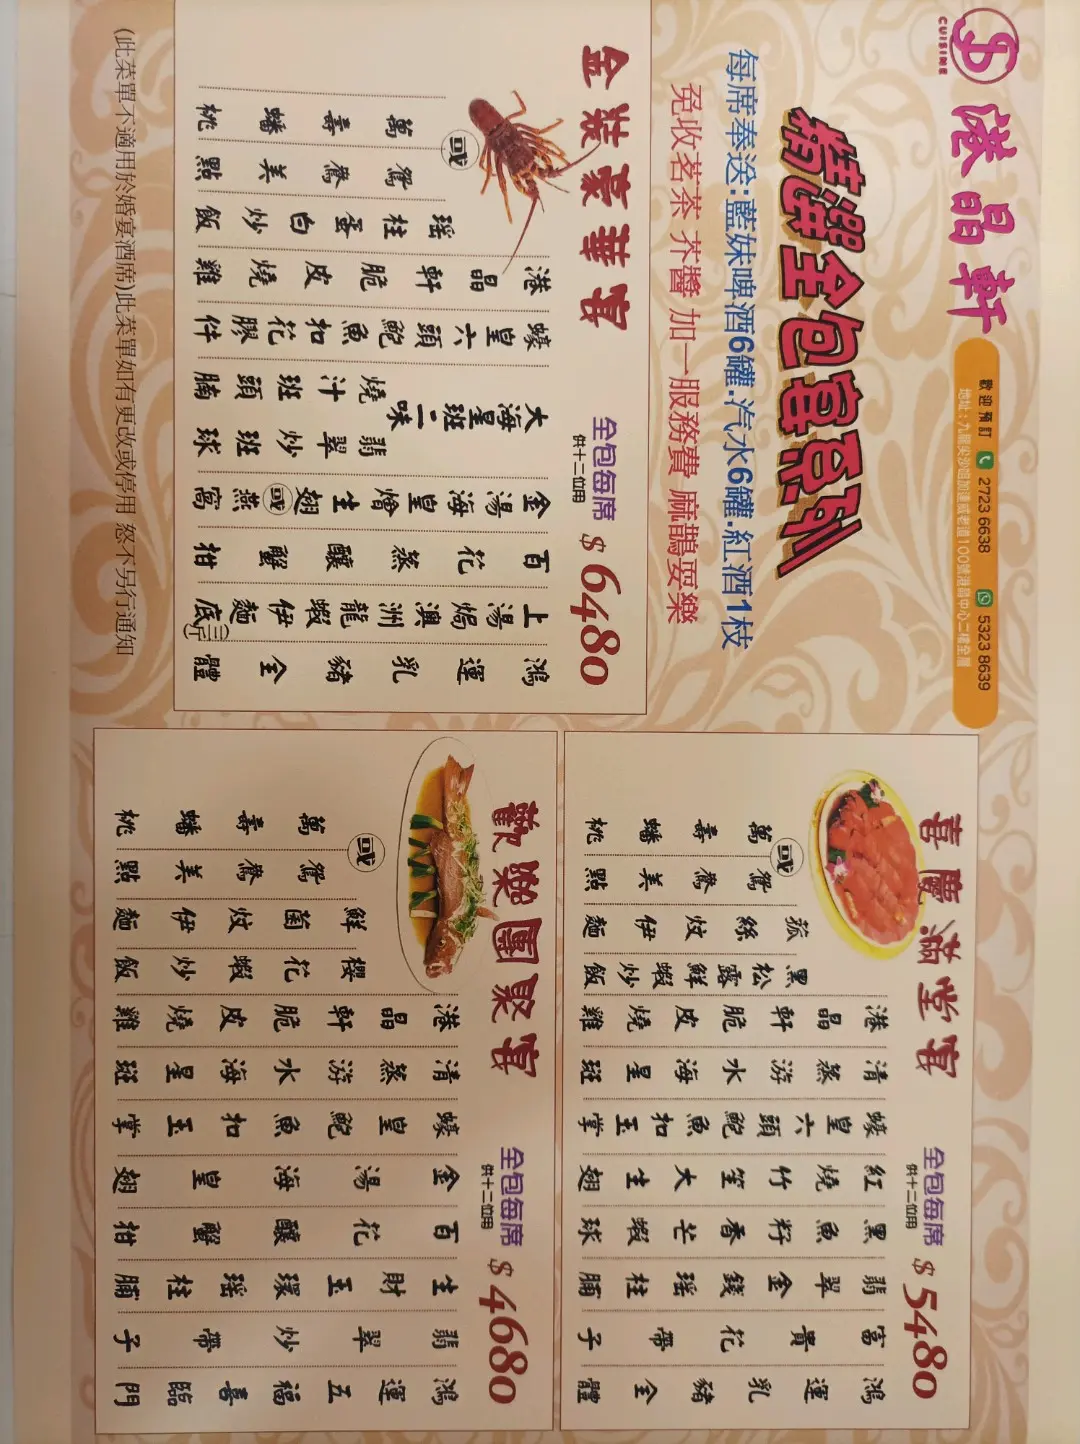 CUISINE
港晶軒
歡迎預訂 2723 6638 5323 8639
地址：九龍尖沙咀加連威老道100號港晶中心二樓全層
精選全包宴系列
每席奉送:藍妹啤酒6罐.汽水6罐.紅酒1枝
免收茗茶 芥醬 加一服務費 麻鵲耍樂
金裝豪華宴
全包每席 $6480
供十二位用
鴻運乳豬全體
上湯焗澳洲龍蝦伊麵底
三斤
百花蒸釀蟹柑
金湯海皇燴生翅或燕窩
大海星班二味
翡翠炒班球
燒汁班頭腩
蠔皇六頭鮑魚扣花膠件
港晶軒脆皮燒雞
瑤柱蛋白炒飯
鴛鴦美點
或
萬壽蟠桃
喜慶滿堂宴
全包每席 $5480
供十二位用
鴻運乳豬全體
富貴花帶子
翡翠金錢瑤柱脯
黑魚籽香芒蝦球
紅燒竹笙大生翅
蠔皇六頭鮑魚扣玉掌
清蒸游水海星斑
港晶軒脆皮燒雞
黑松露鮮蝦炒飯
菰絲炆伊麵
鴛鴦美點
或
萬壽蟠桃
歡樂團聚宴
全包每席 $4680
供十二位用
鴻運五福喜臨門
翡翠炒帶子
生財玉環瑤柱脯
百花釀蟹柑
金湯海皇翅
蠔皇鮑魚扣玉掌
清蒸游水海星斑
港晶軒脆皮燒雞
櫻花蝦炒飯
鮮菌炆伊麵
鴛鴦美點
或
萬壽蟠桃
(此菜單不適用於婚宴酒席)此菜單如有更改或停用 恕不另行通知